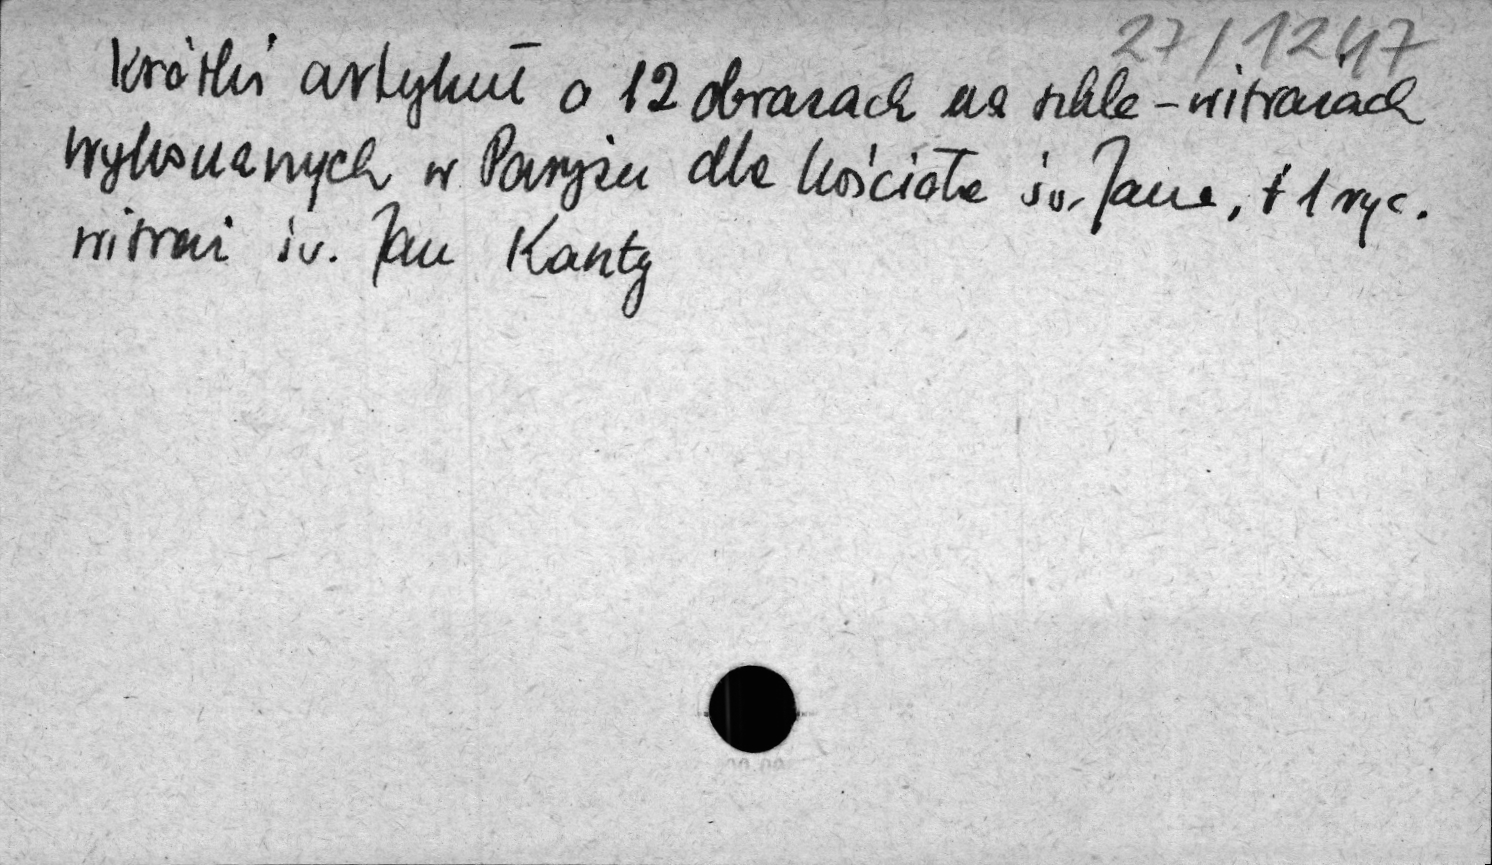 27/1247
Krótki artykuł o 12 obrazach na szkle - witrażach
wykonanych w Paryżu dla kościoła św. Jana, + 1 ryc.
witraż św. Jan Kanty